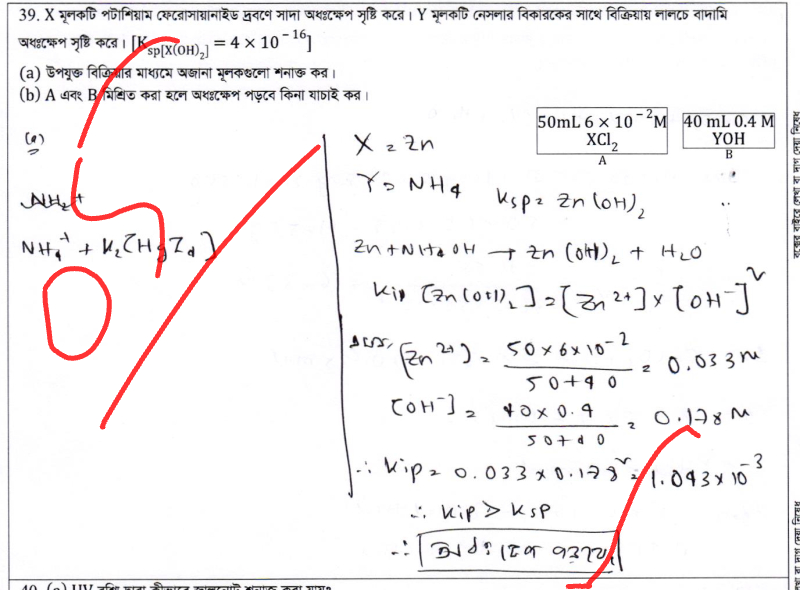 39. X মূলকটি পটাশিয়াম ফেরোসায়ানাইড দ্রবণে সাদা অধঃক্ষেপ সৃষ্টি করে। Y মূলকটি নেসলার বিকারকের সাথে বিক্রিয়ায় লালচে বাদামি
অধঃক্ষেপ সৃষ্টি করে। [K sp[X(OH)₂] = 4 × 10⁻¹⁶]
(a) উপযুক্ত বিক্রিয়ার মাধ্যমে অজানা মূলকগুলো শনাক্ত কর।
(b) A এবং B মিশ্রিত করা হলে অধঃক্ষেপ পড়বে কিনা যাচাই কর।
50mL 6 × 10⁻²M
XCl₂
A
40 mL 0.4 M
YOH
B
(a)
NH₄⁺ + K₂[HgI₄]
X = Zn
Y = NH₄
Ksp = Zn(OH)₂
Zn + NH₄OH → Zn(OH)₂ + H₂O
Kip [Zn(OH)₂] = [Zn²⁺] × [OH⁻]²
[Zn²⁺] = 50×6×10⁻² / 50+40 = 0.033 M
[OH⁻] = 40×0.4 / 50+40 = 0.178 M
∴ Kip = 0.033 × 0.178² = 1.043×10⁻³
∴ Kip > Ksp
∴ অধঃক্ষেপ পড়বে
বক্সের বাইরে লেখা বা দাগ দেয়া নিষেধ